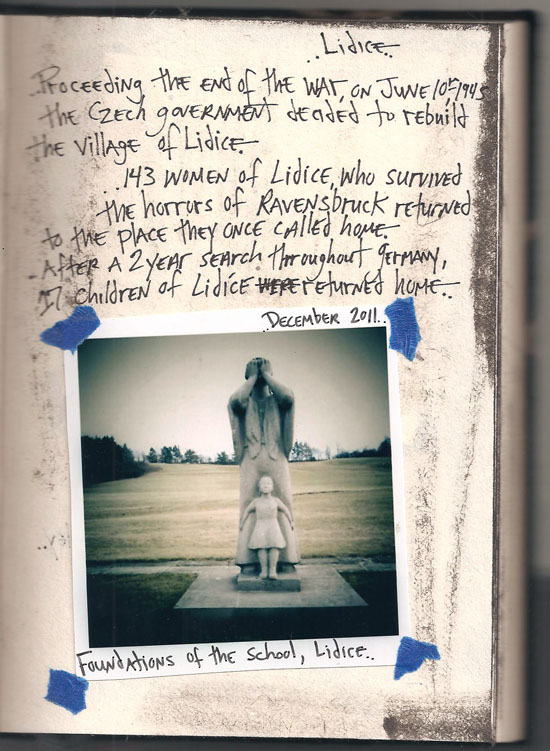 ..Lidice..
Proceeding the end of the war, on June 10th 1945
the Czech government decided to rebuild
the village of Lidice.
...143 women of Lidice, who survived
the horrors of Ravensbruck returned
to the place they once called home.
After a 2 year search throughout Germany,
17 children of Lidice were returned home..
..December 2011..
Foundations of the school, Lidice..